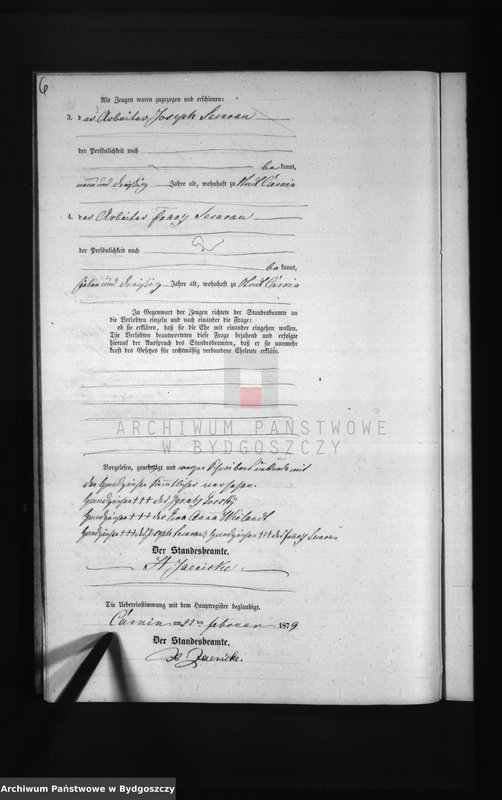 6
Als Zeugen waren zugezogen und erschienen:
3. der Arbeiter Joseph Semrau
der Persönlichkeit nach
bekannt,
neun und dreißig Jahre alt, wohnhaft zu Stadt Camin
4. der Arbeiter Franz Semrau
der Persönlichkeit nach
bekannt,
sieben und dreißig Jahre alt, wohnhaft zu Stadt Camin
In Gegenwart der Zeugen richtete der Standesbeamte an
die Verlobten einzeln und nach einander die Frage:
ob sie erklären, daß sie die Ehe mit einander eingehen wollen.
Die Verlobten beantworteten diese Frage bejahend und erfolgte
hierauf der Ausspruch des Standesbeamten, daß er sie nunmehr
kraft des Gesetzes für rechtmäßig verbundene Eheleute erkläre.
ARCHIWUM PAŃSTWOWE
W BYDGOSZCZY
Vorgelesen, genehmigt und wegen Schreibensunkunde mit
den Handzeichen sämmtlicher versehen.
Handzeichen +++ des Ignatz
Handzeichen +++ der Eva Anna
Handzeichen +++ des Joseph Semrau; Handzeichen +++ des Franz Semrau
Der Standesbeamte.
H. Jaenicke
Die Uebereinstimmung mit dem Hauptregister beglaubigt.
Camin am 22ten Februar 1879
Der Standesbeamte.
H. Jaenicke.
Archiwum Państwowe w Bydgoszczy